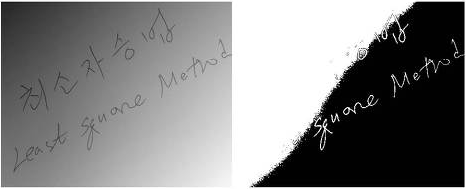 최소자승법
Least Square Method
법
Square Method